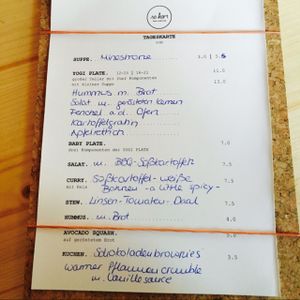 TAGESKARTE
SUPPE. Minestrone 3.0 | 5.5
YOGI PLATE. 12-15 | 18-21 11.5
großer Teller mit fünf Komponenten
mit kleiner Suppe 13.0
Hummus m. Brot
Salat m. gerösteten Kernen
Fenchel a.d. Ofen
Kartoffelgratin
Apfelrettich
BABY PLATE. 7.0
Drei Komponenten der YOGI PLATE
SALAT. m. BBQ-Süßkartoffeln 7.5
CURRY. Süßkartoffel-weiße 7.5
mit Reis Bohnen -a little spicy-
STEW. Linsen-Tomaten-Daal 7.5
HUMMUS. m. Brot 4.0
AVOCADO SQUASH. 5.0
auf geröstetem Brot
KUCHEN. Schokoladenbrownies 3.5
warmer Pflaumencrumble
m. Vanillesauce